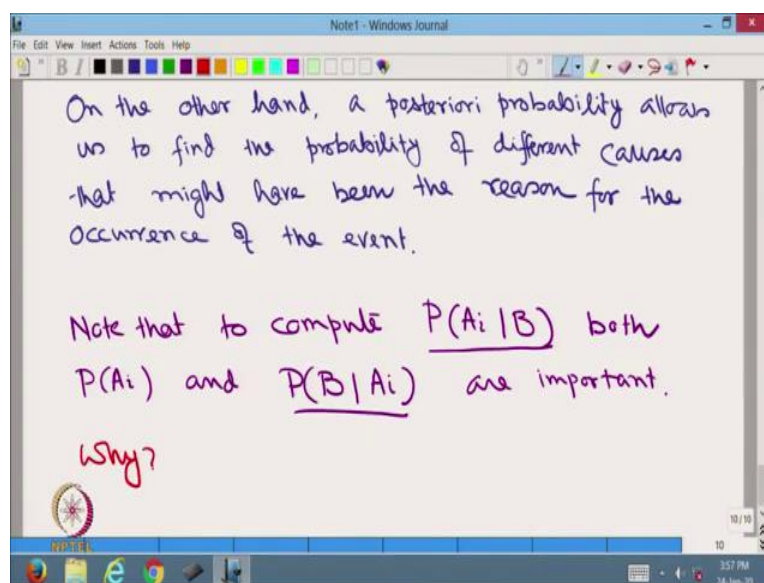 Note1 - Windows Journal
File Edit View Insert Actions Tools Help
B I
On the other hand, a posteriori probability allows
us to find the probability of different causes
that might have been the reason for the
occurrence of the event.
Note that to compute P(Ai | B) both
P(Ai) and P(B | Ai) are important.
Why?
NPTEL
10/10
10
3:57 PM